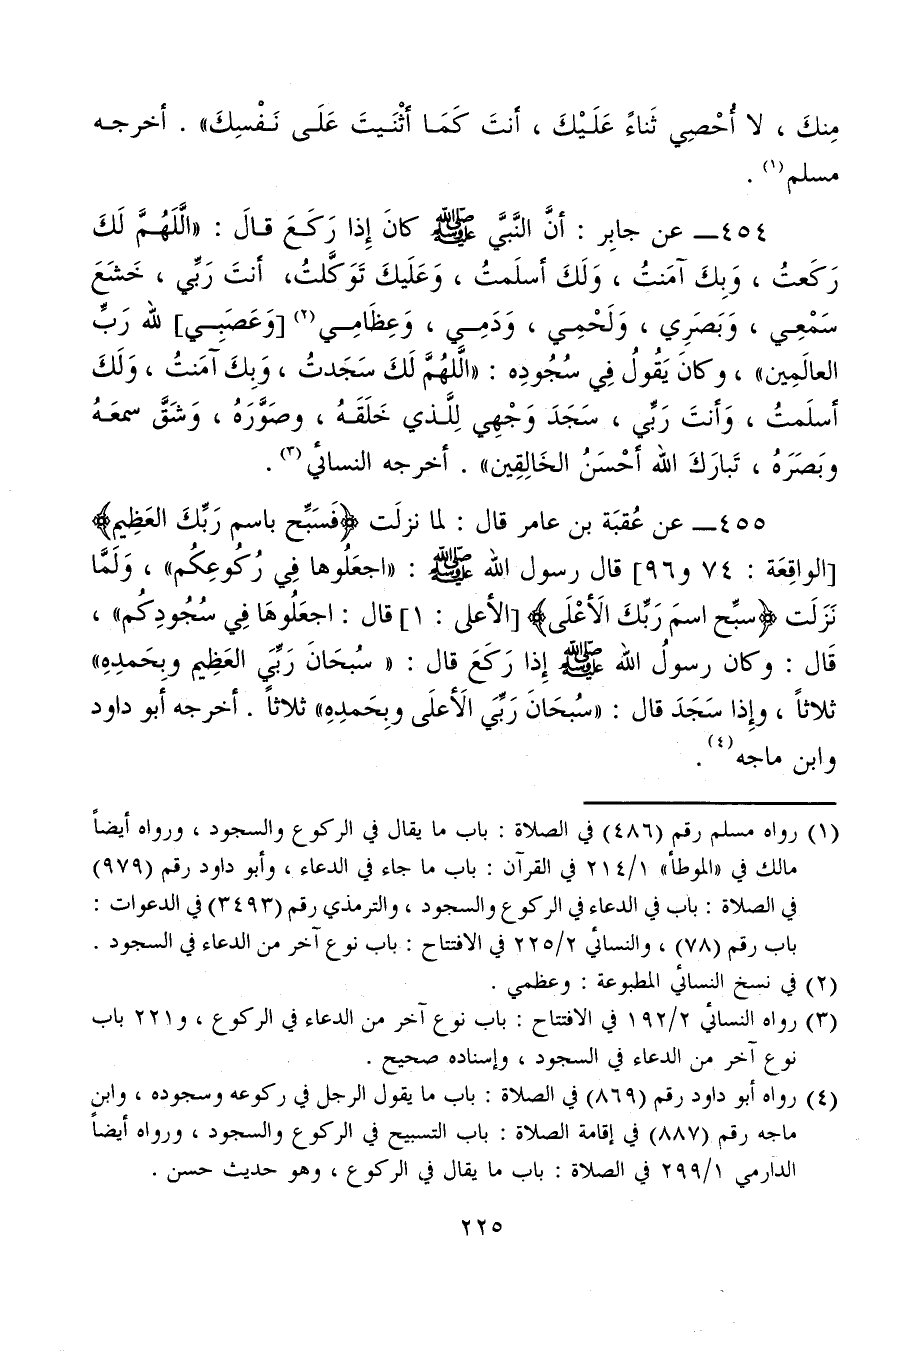 مِنكَ ، لا أُحْصِي ثَناءً عَلَيْكَ ، أنتَ كَمَا أثْنَيتَ عَلَى نَفْسِكَ» . أخرجه
مسلم(١) .
٤٥٤ـ عن جابِر : أنَّ النَّبيَّ ﷺ كانَ إذا رَكَعَ قالَ : «اللَّهُمَّ لَكَ
رَكَعتُ ، وَبِكَ آمَنتُ ، وَلَكَ أسلَمتُ ، وَعَلَيكَ تَوَكَّلتُ، أنتَ رَبِّي ، خَشَعَ
سَمْعِي ، وَبَصَرِي ، وَلَحْمِي ، وَدَمِي ، وَعِظَامِي(٢) [وَعَصَبِي] لله رَبِّ
العالَمِين» ، وكانَ يَقُولُ فِي سُجُودِه : «اللَّهُمَّ لَكَ سَجَدتُ ، وَبِكَ آمَنتُ ، وَلَكَ
أسلَمتُ ، وَأنتَ رَبِّي ، سَجَدَ وَجْهِي لِلَّذي خَلَقَهُ ، وصَوَّرَهُ ، وَشَقَّ سمعَهُ
وبَصَرَهُ ، تَبارَكَ الله أحْسَنُ الخالِقِين» . أخرجه النسائي(٣) .
٤٥٥ـ عن عُقبَة بن عامر قال : لما نزلَت ﴿فَسَبِّح باسم رَبِّكَ العَظِيم﴾
[الواقِعَة : ٧٤ و٩٦] قال رسول الله ﷺ : «اجعَلُوها فِي رُكُوعِكُم» ، وَلَمَّا
نَزَلَت ﴿سبِّح اسمَ رَبِّكَ الأعْلَى﴾ [الأعلى : ١] قال : اجعَلُوهَا فِي سُجُودِكُم» ،
قَال : وكان رسولُ الله ﷺ إذا رَكَعَ قال : « سُبحَانَ رَبِّيَ العَظِيم وبِحَمدِهِ»
ثلاثاً ، وإذا سَجَدَ قال : «سُبحَانَ رَبِّيَ الأعلَى وبِحَمدِهِ» ثلاثاً . أخرجه أبو داود
وابن ماجه(٤) .
(١) رواه مسلم رقم (٤٨٦) في الصلاة : باب ما يقال في الركوع والسجود ، ورواه أيضاً
مالك في «الموطأ» ٢١٤/١ في القرآن : باب ما جاء في الدعاء ، وأبو داود رقم (٩٧٩)
في الصلاة : باب في الدعاء في الركوع والسجود ، والترمذي رقم (٣٤٩٣) في الدعوات :
باب رقم (٧٨) ، والنسائي ٢٢٥/٢ في الافتتاح : باب نوع آخر من الدعاء في السجود .
(٢) في نسخ النسائي المطبوعة : وعظمي .
(٣) رواه النسائي ١٩٢/٢ في الافتتاح : باب نوع آخر من الدعاء في الركوع ، و٢٢١ باب
نوع آخر من الدعاء في السجود ، وإسناده صحيح .
(٤) رواه أبو داود رقم (٨٦٩) في الصلاة : باب ما يقول الرجل في ركوعه وسجوده ، وابن
ماجه رقم (٨٨٧) في إقامة الصلاة : باب التسبيح في الركوع والسجود ، ورواه أيضاً
الدارمي ٢٩٩/١ في الصلاة : باب ما يقال في الركوع ، وهو حديث حسن .
٢٢٥